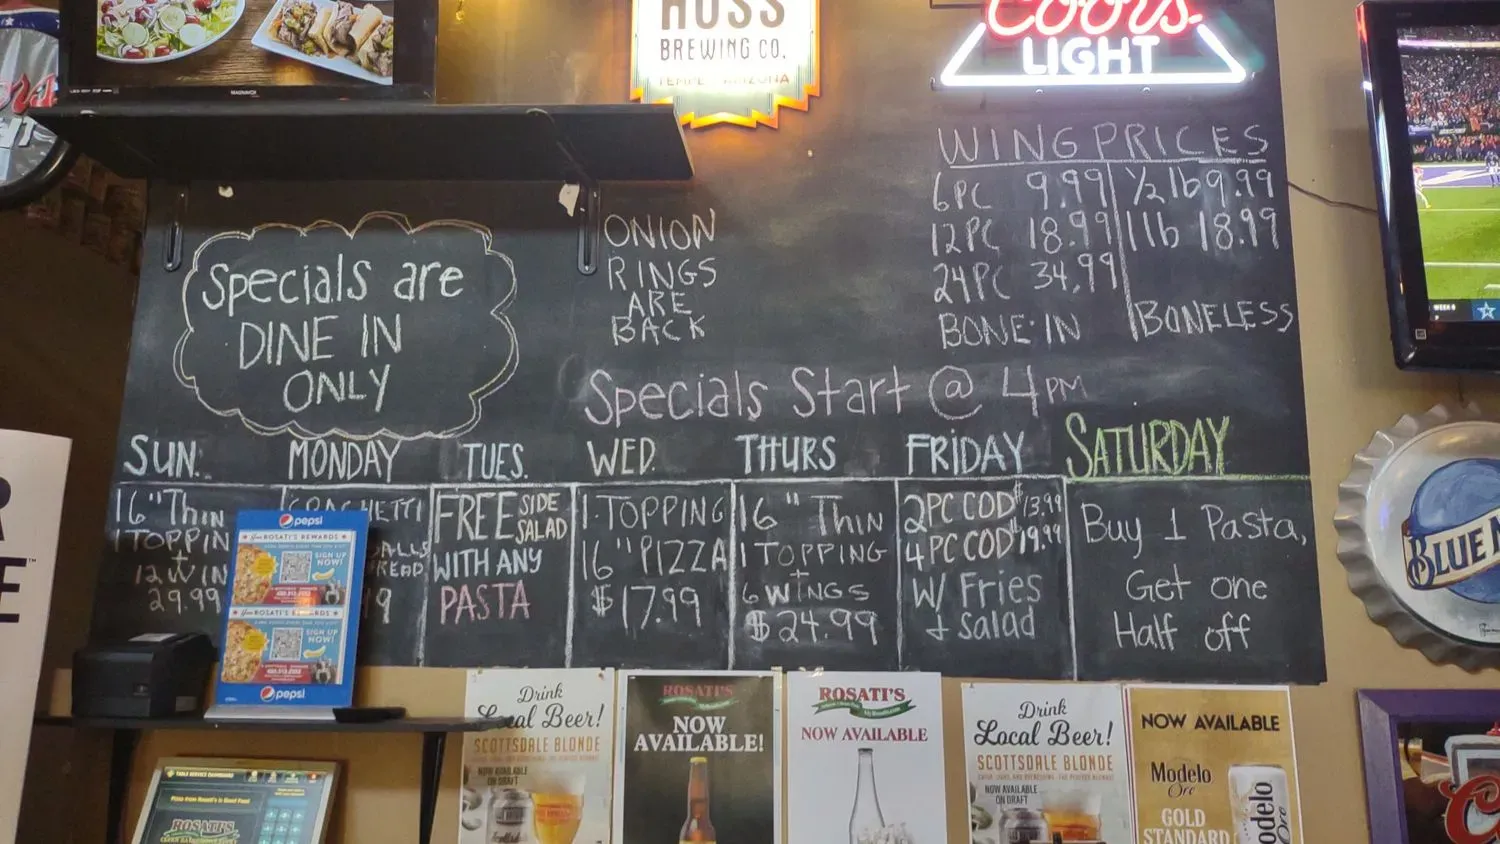 HUSS
BREWING CO.
TEMPE ARIZONA
Coors
LIGHT
MAGNAVOX
WING PRICES
6PC 9.99 1/2 lb 9.99
12PC 18.99 1 lb 18.99
24PC 34.99
BONE-IN BONELESS
Specials are
DINE IN
ONLY
ONION
RINGS
ARE
BACK
Specials Start @ 4PM
SUN.
16" Thin
1 TOPPIN
+
12 WIN
29.99
MONDAY
TUES.
FREE SIDE SALAD
WITH ANY
PASTA
WED.
1-TOPPING
16" PIZZA
$17.99
THURS
16" Thin
1 TOPPING
+
6 WINGS
$24.99
FRIDAY
2PC COD $13.99
4PC COD $19.99
W/ Fries
+ Salad
SATURDAY
Buy 1 Pasta,
Get one
Half off
pepsi
Your ROSATI'S REWARDS
SIGN UP
NOW!
Your ROSATI'S REWARDS
SIGN UP
NOW!
pepsi
TABLE SERVICE DASHBOARD
ROSATI'S
Drink
Local Beer!
SCOTTSDALE BLONDE
NOW AVAILABLE
ON DRAFT
ROSATI'S
NOW
AVAILABLE!
ROSATI'S
NOW AVAILABLE
Drink
Local Beer!
SCOTTSDALE BLONDE
NOW AVAILABLE
ON DRAFT
NOW AVAILABLE
Modelo
Oro
GOLD
STANDARD
Modelo
Oro
BLUE M
WEEK 6